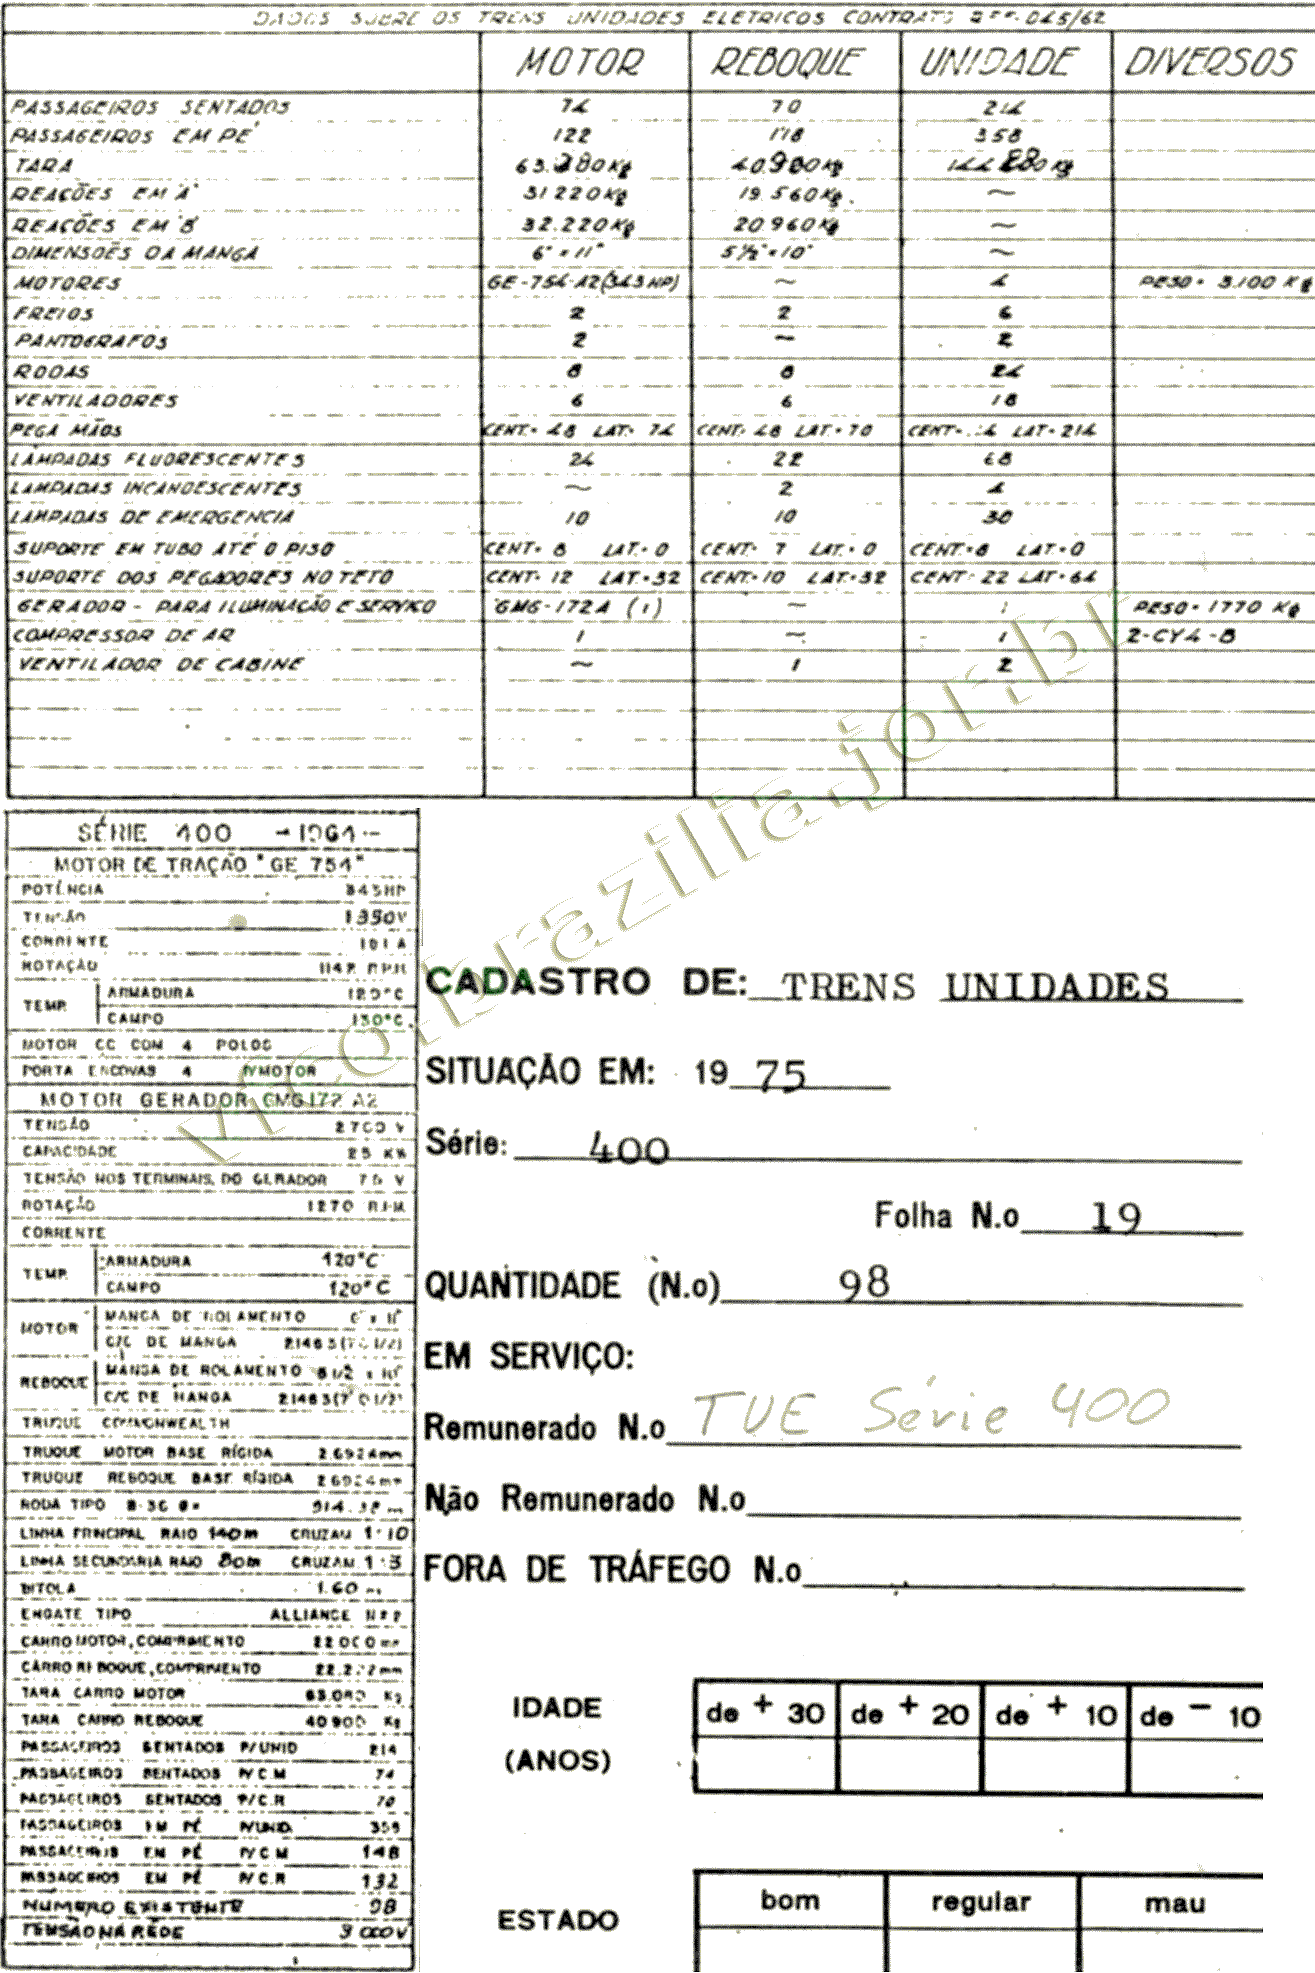 DADOS SOBRE OS TRENS UNIDADES ELETRICOS CONTRATO 045/62
MOTOR REBOQUE UNIDADE DIVERSOS
PASSAGEIROS SENTADOS 74 70 214
PASSAGEIROS EM PÉ 122 118 358
TARA 63.380Kg 40.900Kg 144.880Kg
REAÇÕES EM "A" 31220Kg 19.560Kg. ~
REAÇÕES EM "B" 32.220Kg 20960Kg ~
DIMENSOES DA MANGA 6" × 11" 5 1/2" × 10" ~
MOTORES GE-754-A2(343HP) ~ 4 PESO = 3.100 Kg
FREIOS 2 2 6
PANTOGRAFOS 2 ~ 2
RODAS 8 8 24
VENTILADORES 6 6 18
PEGA MÃOS CENT- 48 LAT- 74 CENT- 48 LAT-70 CENT- LAT-214
LAMPADAS FLUORESCENTES 24 22 68
LAMPADAS INCANDESCENTES ~ 2 4
LAMPADAS DE EMERGENCIA 10 10 30
SUPORTE EM TUBO ATÉ O PISO CENT- 8 LAT- 0 CENT- 7 LAT- 0 CENT-8 LAT-0
SUPORTE DOS PEGADORES NO TETO CENT- 12 LAT-32 CENT-10 LAT-32 CENT-22 LAT-64
GERADOR - PARA ILUMINAÇÃO E SERVIÇO GMG-172A (1) ~ 1 PESO-1770 Kg
COMPRESSOR DE AR 1 ~ 1 2-CY4-B
VENTILADOR DE CABINE ~ 1 2
SÉRIE 400 - 1964 -
MOTOR DE TRAÇÃO "GE 754"
POTÊNCIA 343HP
TENSÃO 1350V
CORRENTE 191 A
ROTAÇÃO RPM
TEMP. ARMADURA 120°C
CAMPO 130°C
MOTOR CC COM 4 POLOS
PORTA ESCOVAS 4 P/MOTOR
MOTOR GERADOR GMG172 A2
TENSÃO 2700 V
CAPACIDADE 25 KW
TENSÃO NOS TERMINAIS, DO GERADOR 75 V
ROTAÇÃO 1270 RPM
CORRENTE
TEMP. ARMADURA 120°C
CAMPO 120°C
MOTOR MANGA DE ROLAMENTO 6" x 11"
C/C DE MANGA
REBOQUE MANGA DE ROLAMENTO 5 1/2 x 10"
C/C DE MANGA
TRUQUE COMMONWEALTH
TRUQUE MOTOR BASE RÍGIDA 2.6924mm
TRUQUE REBOQUE BASE RÍGIDA 2.6924mm
RODA TIPO B-36 914.
LINHA PRINCIPAL RAIO 140m CRUZAM 1:10
LINHA SECUNDÁRIA RAIO 80m CRUZAM. 1:3
BITOLA 1.60 m
ENGATE TIPO ALLIANCE Nº 2
CARRO MOTOR, COMPRIMENTO 22.000mm
CARRO REBOQUE, COMPRIMENTO mm
TARA CARRO MOTOR Kg
TARA CARRO REBOQUE 40900 Kg
PASSAGEIROS SENTADOS P/UNID 214
PASSAGEIROS SENTADOS P/C M 74
PASSAGEIROS SENTADOS P/C.R 70
PASSAGEIROS EM PÉ P/UNID.
PASSAGEIROS EM PÉ P/C M 148
PASSAGEIROS EM PÉ P/C.R 132
NUMERO EXISTENTE 98
TENSÃO NA REDE 3 000V
CADASTRO DE: TRENS UNIDADES
SITUAÇÃO EM: 19 75
Série: 400
Folha N.o 19
QUANTIDADE (N.o) 98
EM SERVIÇO:
Remunerado N.o TUE Série 400
Não Remunerado N.o
FORA DE TRÁFEGO N.o
IDADE (ANOS) de + 30 de + 20 de + 10 de - 10
ESTADO bom regular mau
vfco.brazilia.jor.br